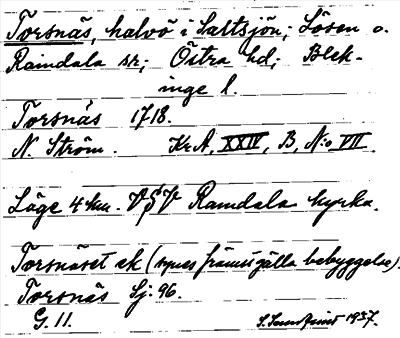 Torsnäs, halvö i Saltsjön; Lösen o.
Ramdala sr; Östra hd; Blek-
inge l.
Torsnäs 1718.
N. Ström. Kr A, XXIV, B, N:o VII.
Läge 4 km. VSV Ramdala kyrka.
Torsnäset ek (synes främst gälla bebyggelse).
Torsnäs Sj: 96.
G. 11. 1937.